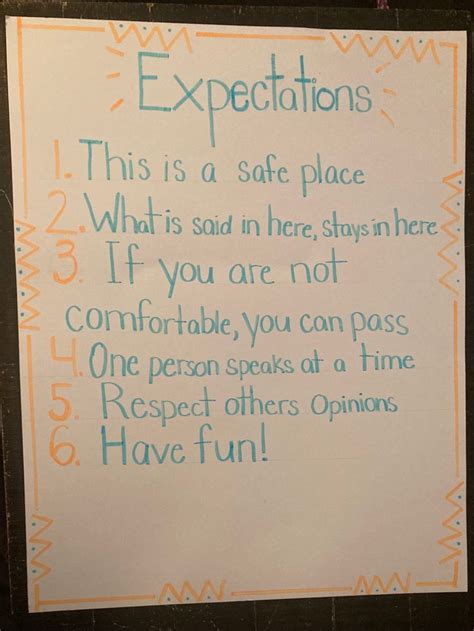 Expectations
1. This is a safe place
2. What is said in here, stays in here
3. If you are not
comfortable, you can pass
4. One person speaks at a time
5. Respect others Opinions
6. Have fun!